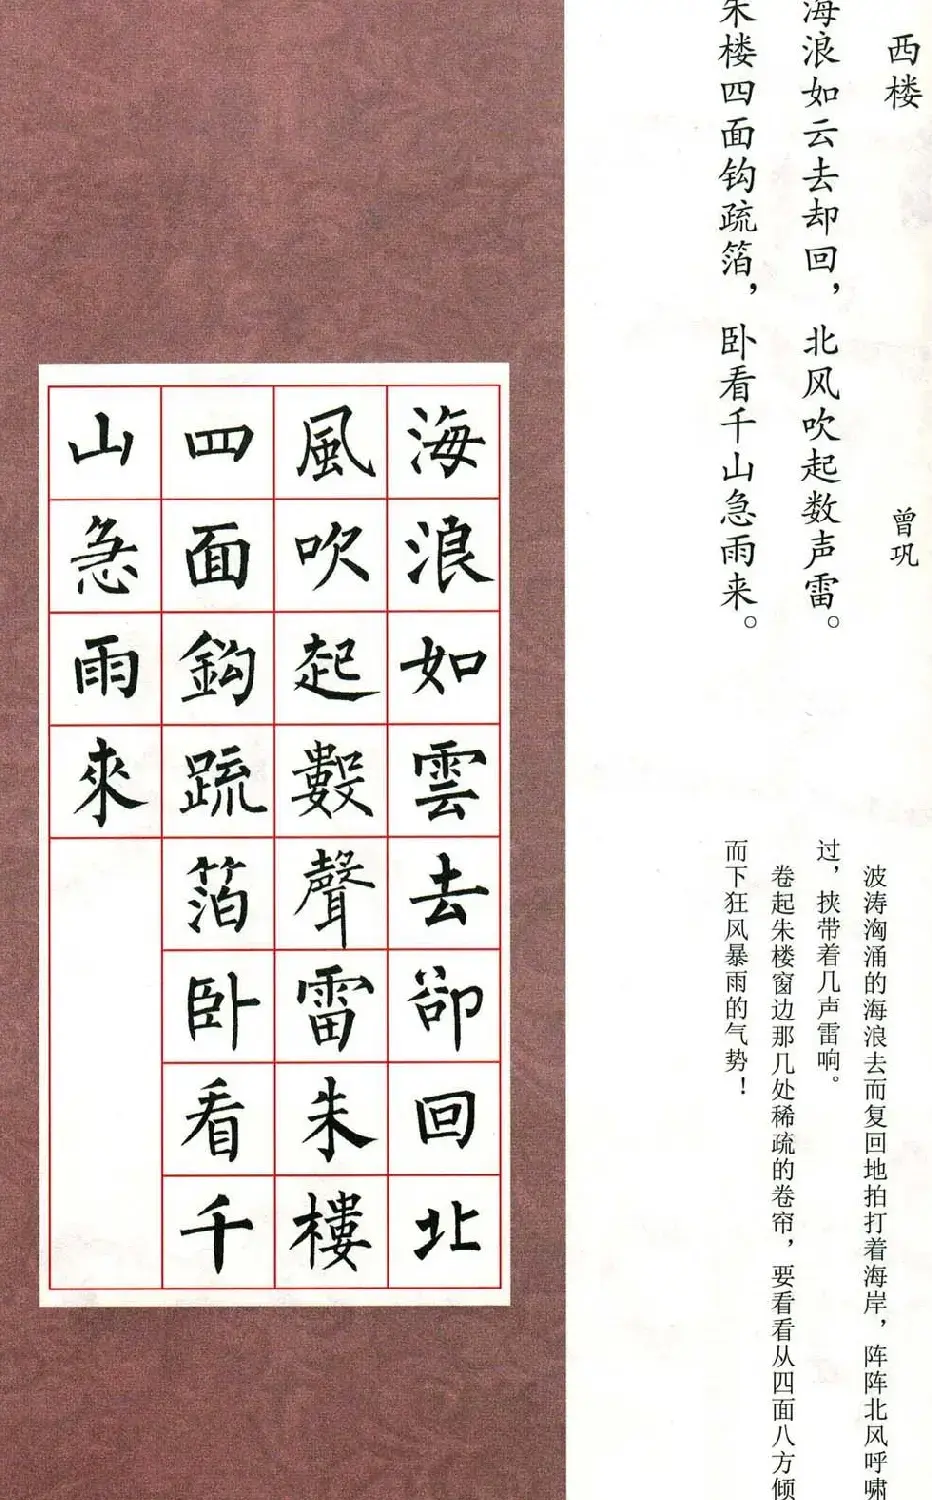 西楼
曾巩
海浪如云去却回，北风吹起数声雷。
朱楼四面钩疏箔，卧看千山急雨来。
波涛汹涌的海浪去而复回地拍打着海岸，阵阵北风呼啸
过，挟带着几声雷响。
卷起朱楼窗边那几处稀疏的卷帘，要看看从四面八方倾
而下狂风暴雨的气势！
海浪如雲去卻回北
風吹起數聲雷朱樓
四面鈎疏箔卧看千
山急雨來